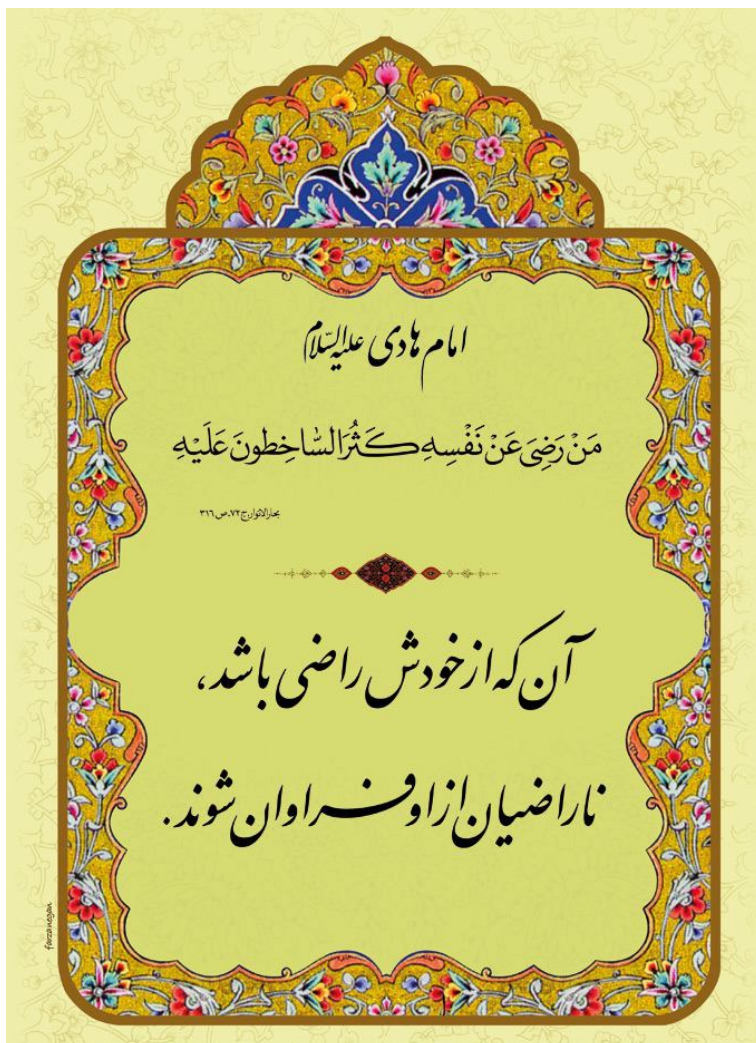 امام هادی علیه‌السّلام
مَنْ رَضِیَ عَنْ نَفْسِهِ كَثُرَ السّاخِطونَ عَلَيْهِ
بحارالانوار، ج ۷۲، ص ۳۱۶
آن که از خودش راضی باشد،
ناراضیان از او فراوان شوند.
farzanegan